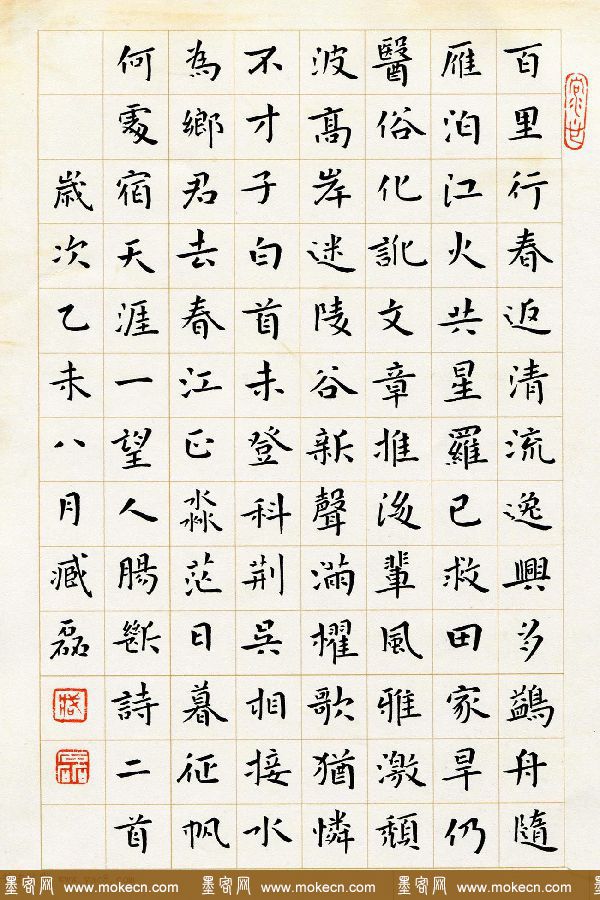 百里行春返清流逸興多鷁舟隨
雁泊江火共星羅已救田家旱仍
醫俗化訛文章推後輩風雅激頹
波高岸迷陵谷新聲滿櫂歌猶憐
不才子白首未登科荊吳相接水
為鄉君去春江正淼茫日暮征帆
何處宿天涯一望人腸斷詩二首
歲次乙未八月臧磊
墨客网 www.mokecn.com 墨客网 www.mokecn.com 墨客网 www.mokecn.com